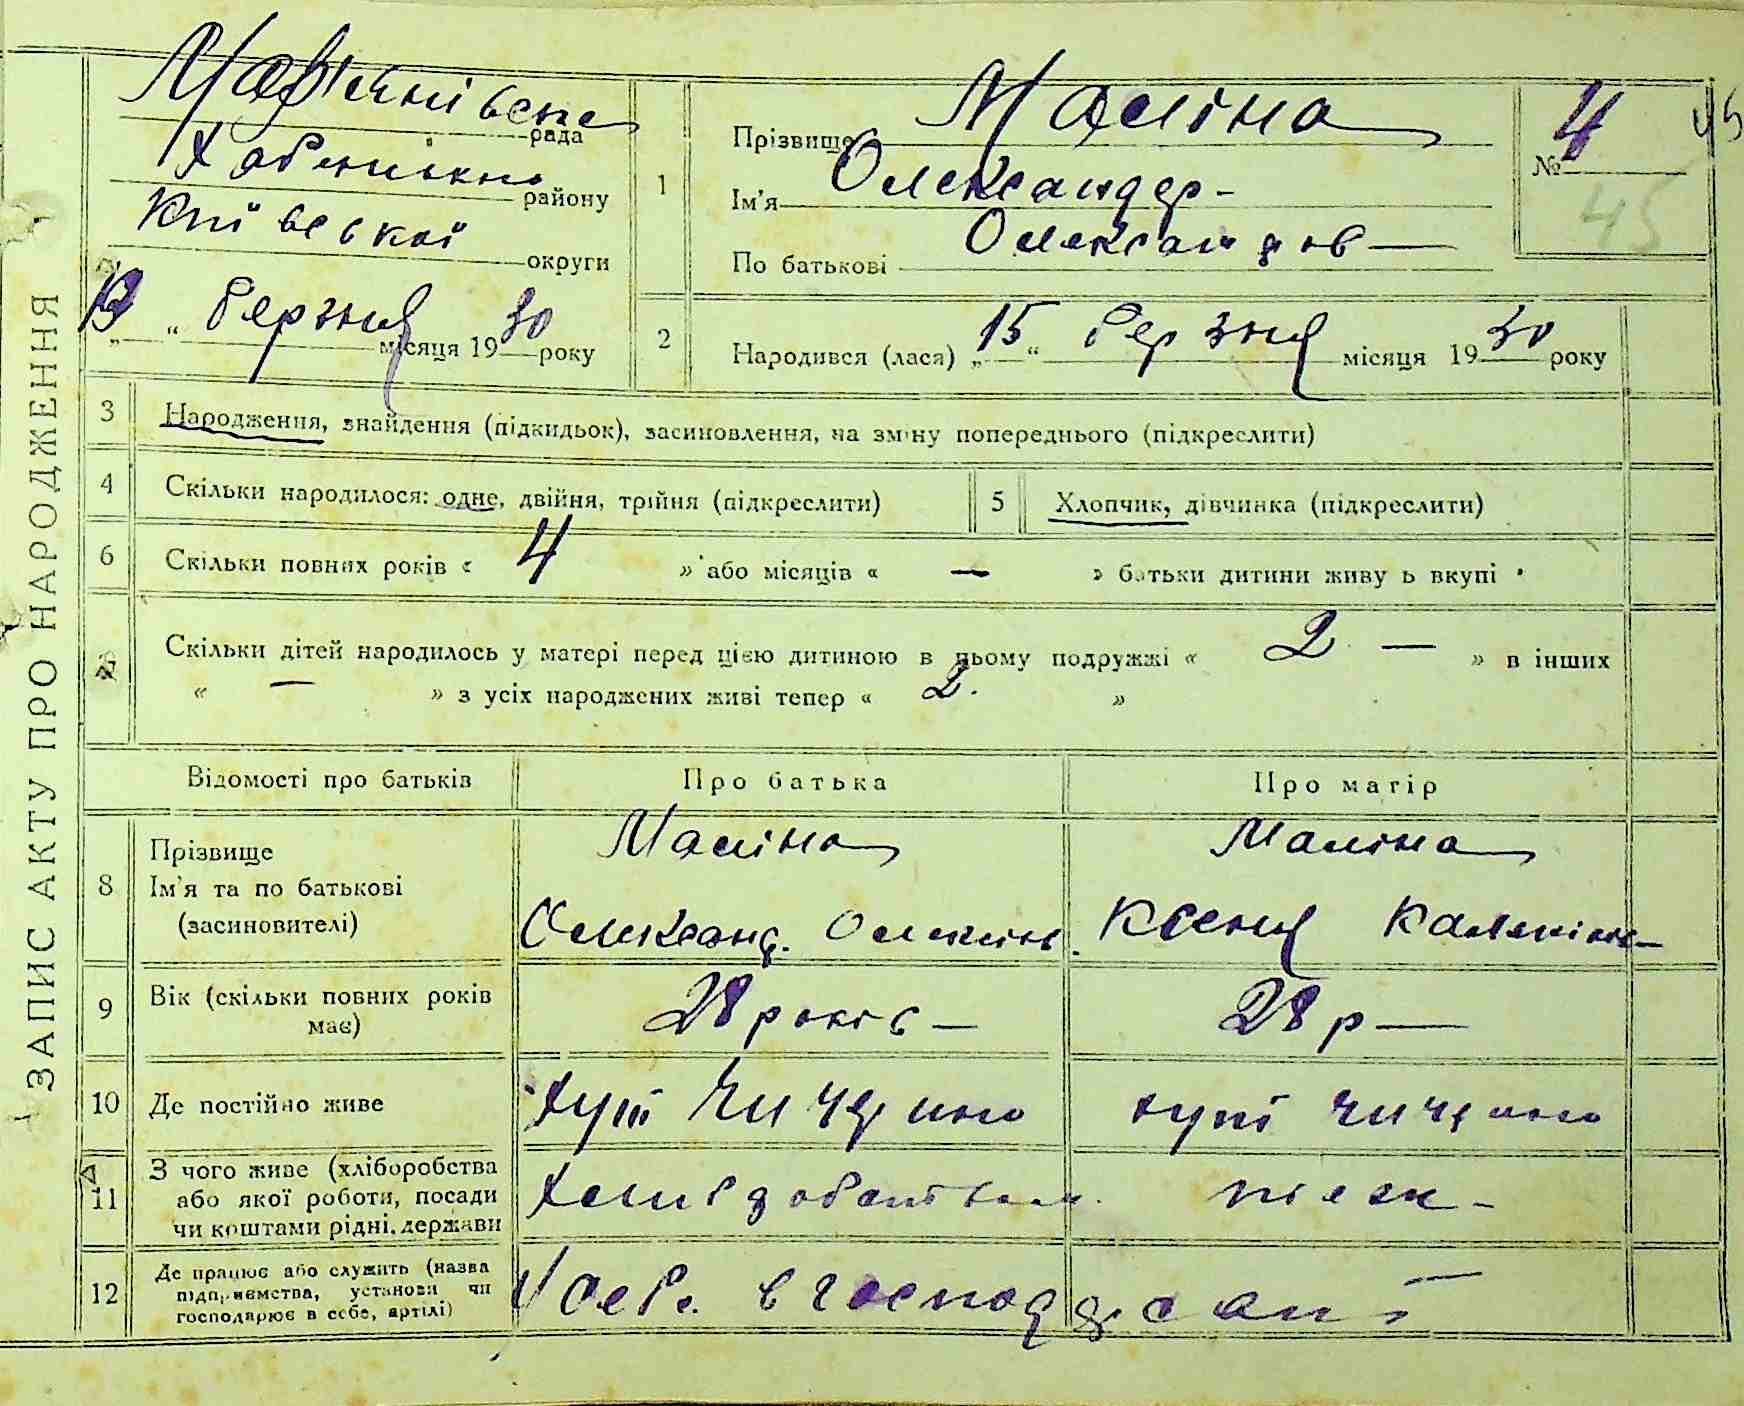 ЗАПИС АКТУ ПРО НАРОДЖЕННЯ
рада
району
Київської
округи
" березня місяця 1930 року
1
Прізвище Маліна
Ім'я Олександер
По батькові Олександров
№ 4
45
45
2
Народився (лася) „15“ березня місяця 1930 року
3 Народження, знайдення (підкидьок), засиновлення, на зміну попереднього (підкреслити)
4 Скільки народилося: одне, двійня, трійня (підкреслити)
5 Хлопчик, дівчинка (підкреслити)
6 Скільки повних років « 4 » або місяців « — » батьки дитини живу ь вкупі
Скільки дітей народилось у матері перед цією дитиною в цьому подружжі « 2 — » в інших
« — » з усіх народжених живі тепер « 2. »
Відомості про батьків Про батька Про матір
8
Прізвище
Ім'я та по батькові
(засиновителі)
Маліна
Олександ.
Маліна
Ксения
9
Вік (скільки повних років
має)
28 років —
28 р —
10 Де постійно живе
хут
хут
11
З чого живе (хліборобства
або якої роботи, посади
чи коштами рідні, держави
12
Де працює або служить (назва
підприємства, установи чи
господарює в себе, артілі)
У себе в